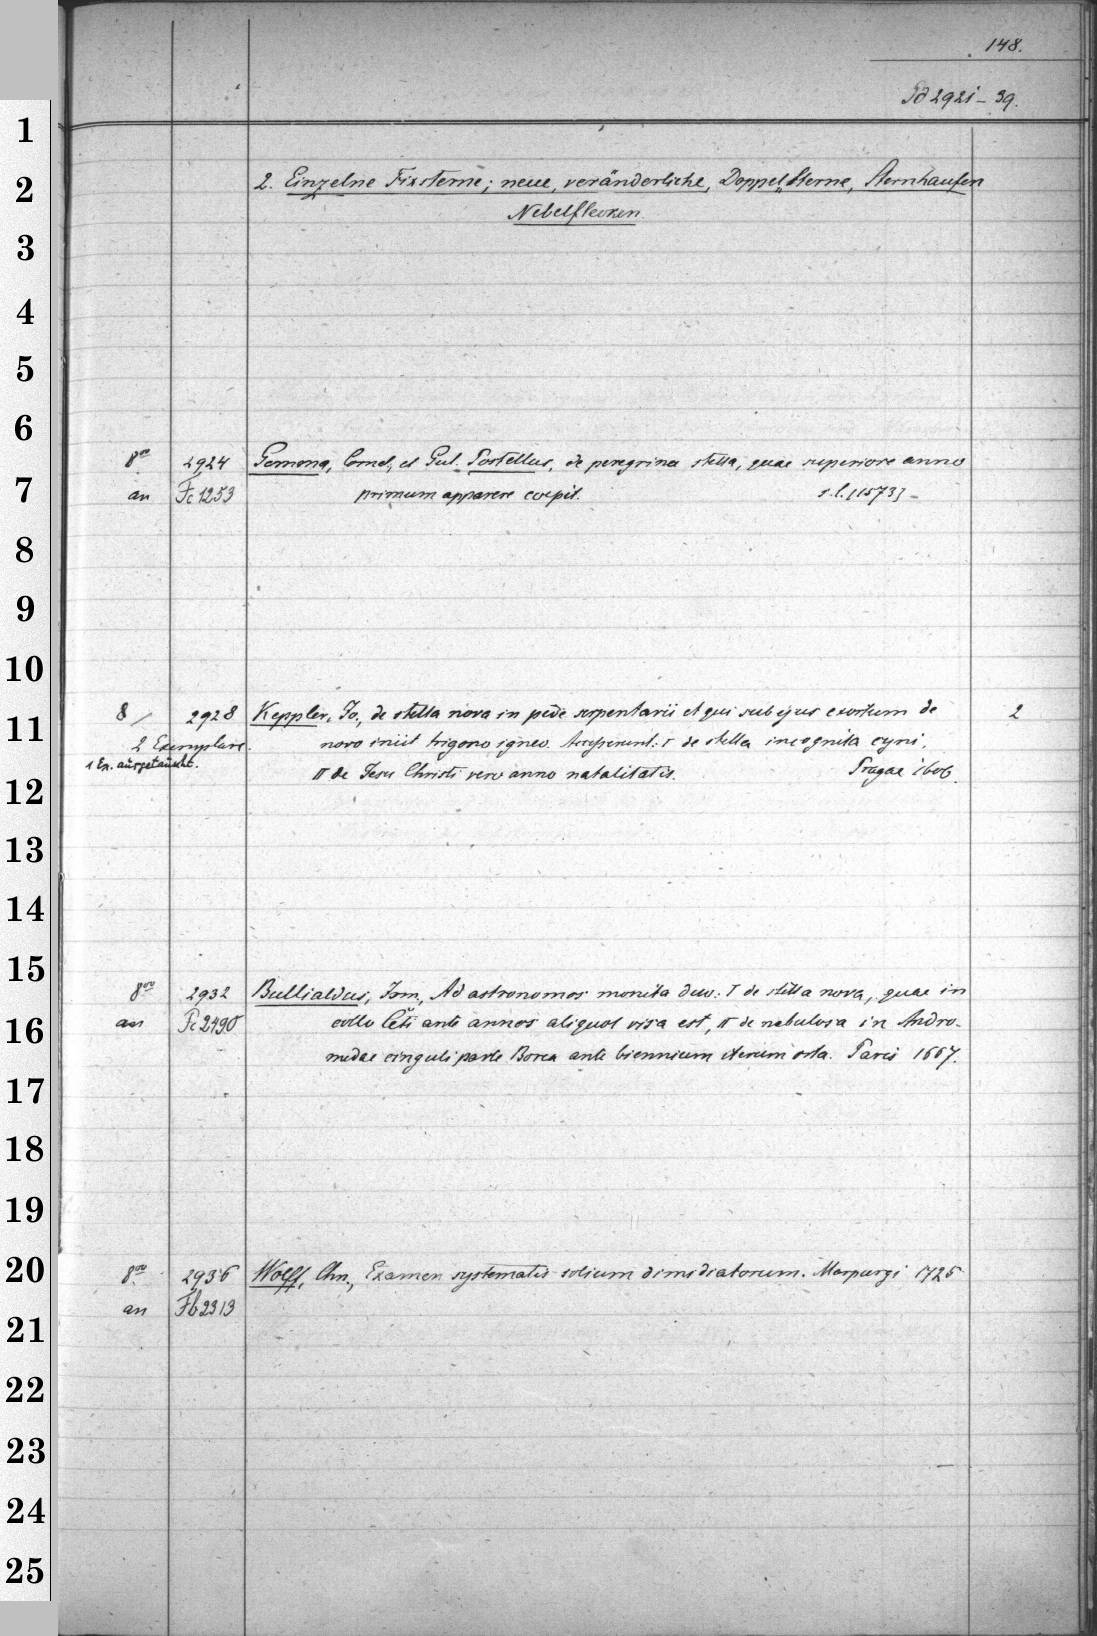 148.
Pd 2921-39.
1
2
3
4
5
6
7
8
9
10
11
12
13
14
15
16
17
18
19
20
21
22
23
24
25
2. Einzelne Fixsterne; neue, veränderliche, Doppel Sterne, Sternhaufen
Nebelflecken.
8vo 2924 Gemma, Cornel, et Gul. Postellus, de peregrina stella, quae superiore anno
an Fc 1253 primum apparere coepit. s. l. [1573] -
8 2928 Keppler, Jo., de stella nova in pede serpentarii et qui sub ejus exortum de 2
2 Exemplare. novo iniit trigono igneo. Accesserunt: I de stella incognita cygni,
1 Ex. ausgetauscht. II de Jesu Christi vero anno natalitatis. Pragae 1606.
8vo 2932 Bullialdus, Ism., Ad astronomos monita duo: I de stella nova, quae in
an Pc 2490 collo Ceti ante annos aliquot visa est, II de nebulosa in Andro-
medae cinguli parte Borea ante biennium iterum orta. Paris 1667.
8vo 2936 Wolff, Chn., Examen systematis solium dimidiatorum. Marpurgi 1725
an Fb 2313